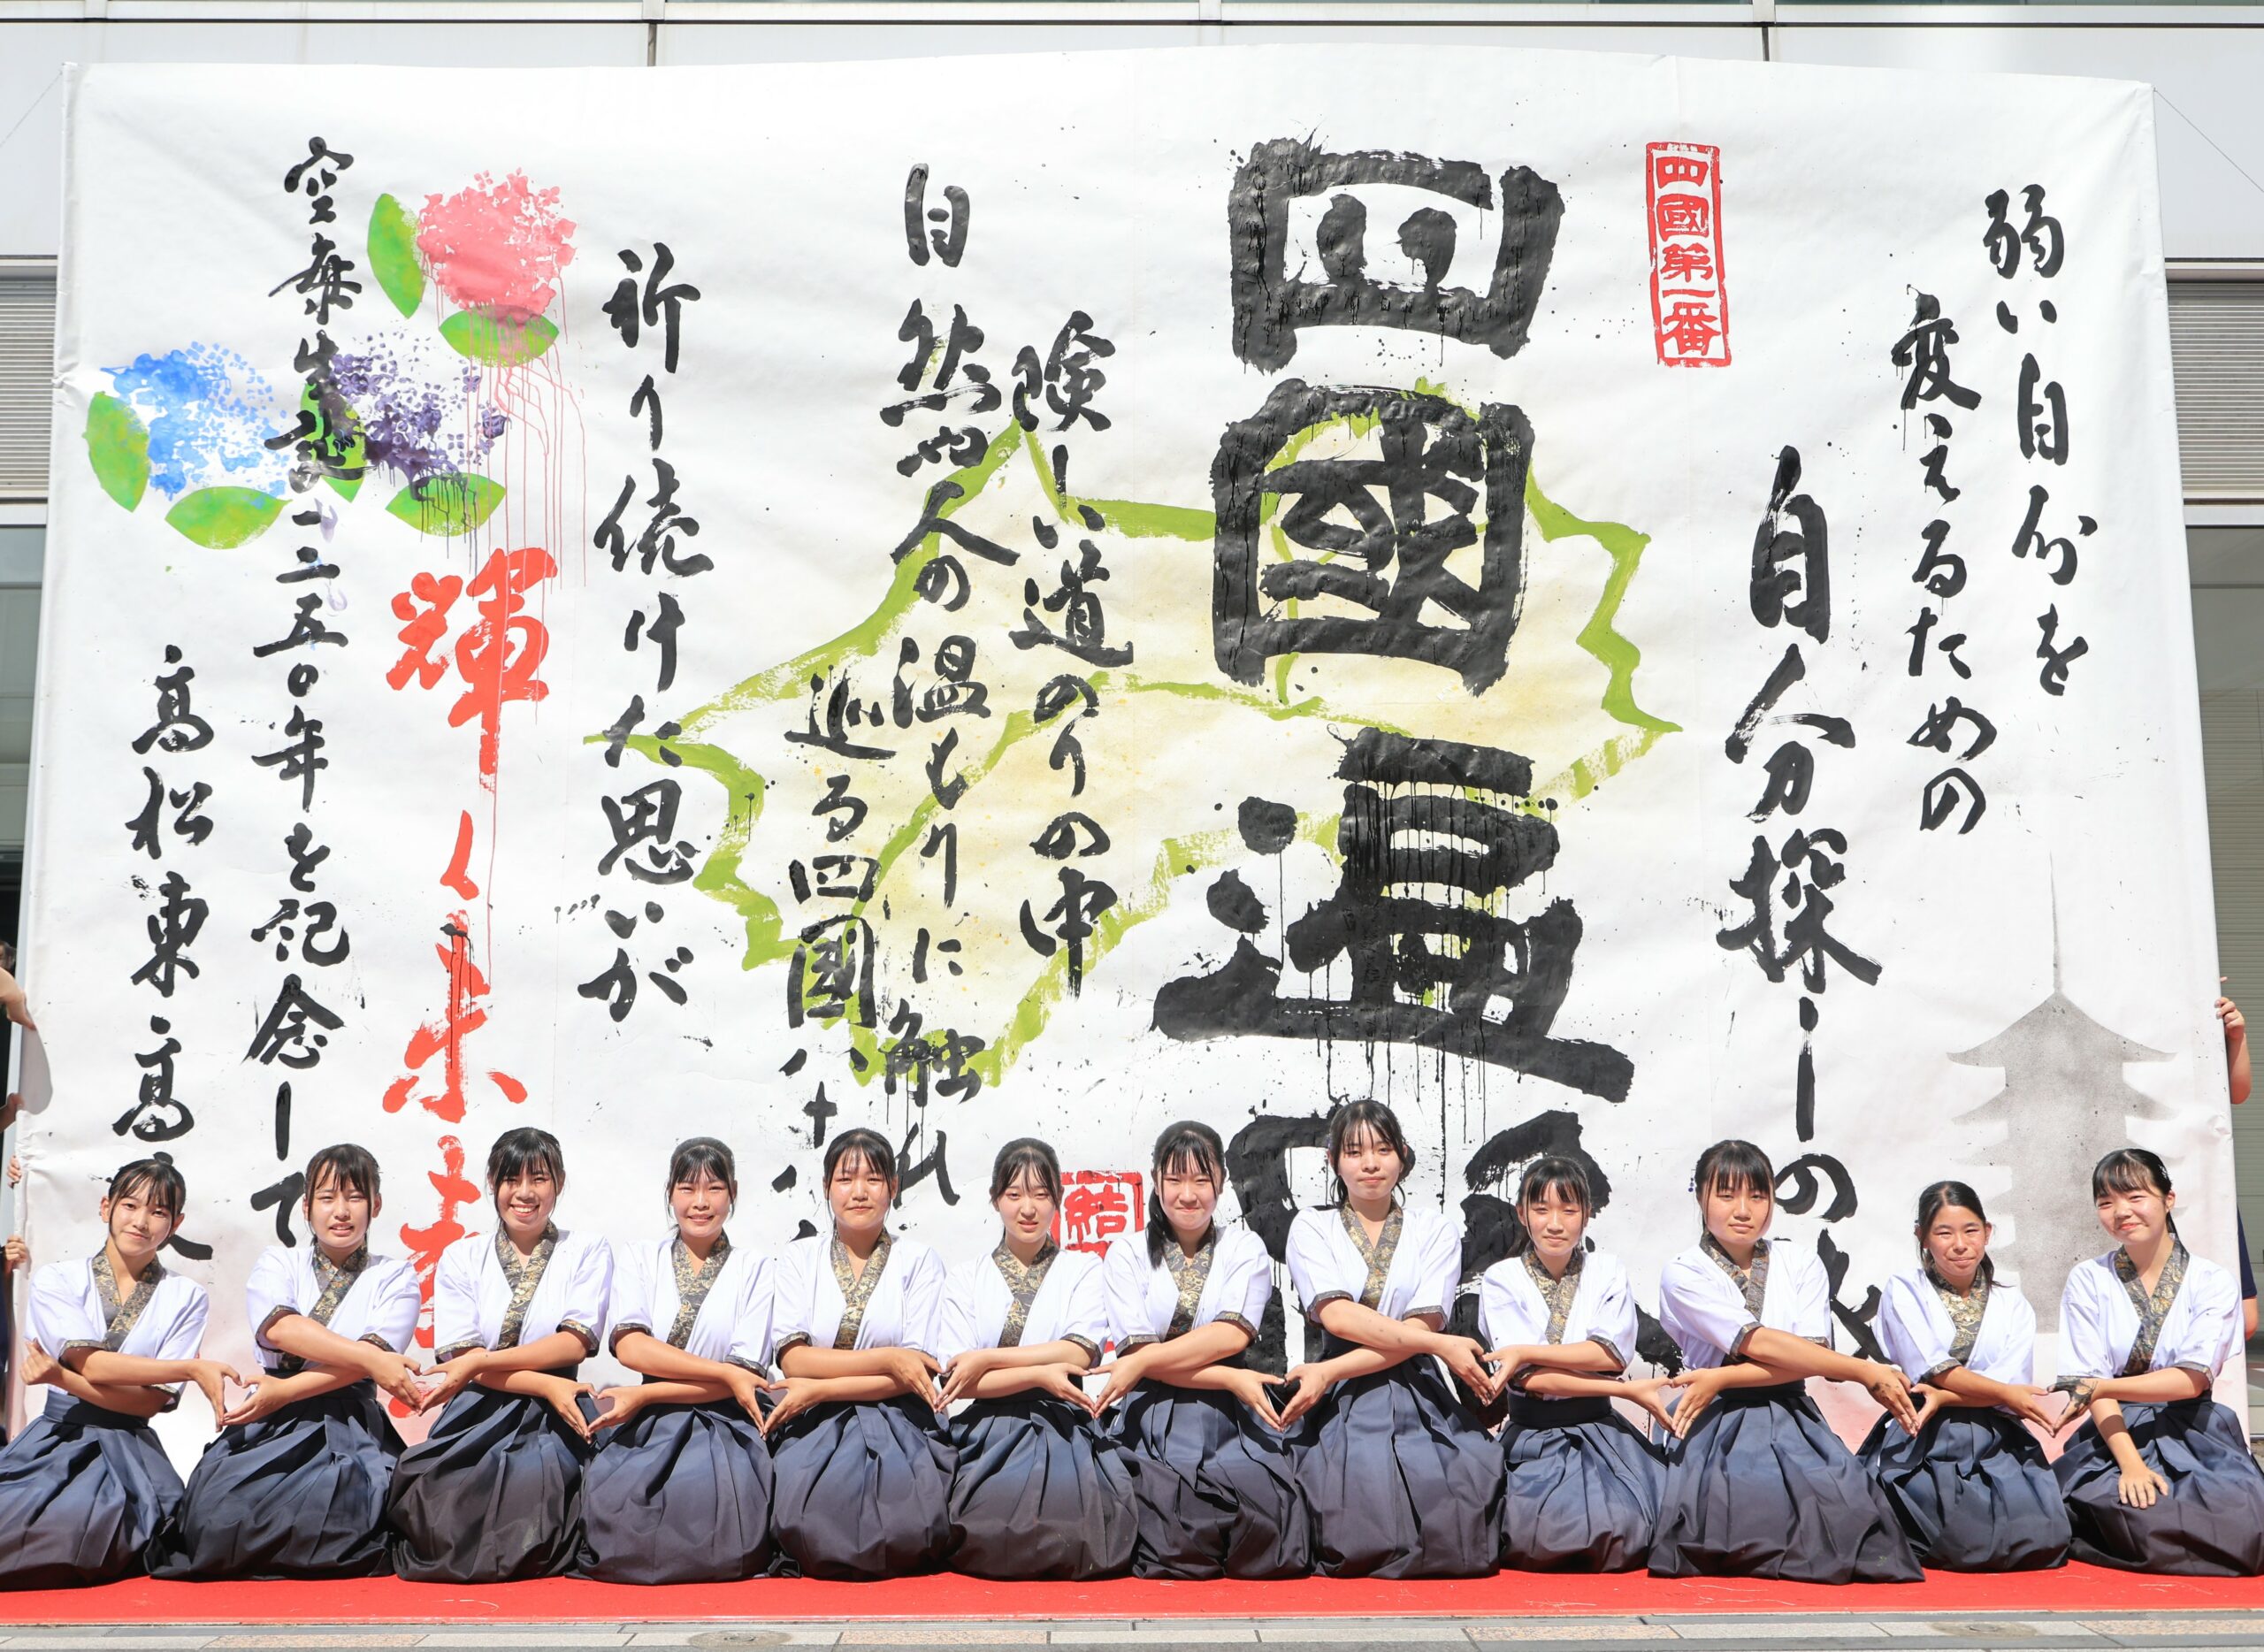 弱い自分を
変えるための
自分探しの
四國第一番
四國遍路
険しい道のりの中
自然や人の温もりに触れ
巡る四國八十
結
祈り続けた思いが
輝く未来
空海生誕一二五〇年を記念して
高松東高